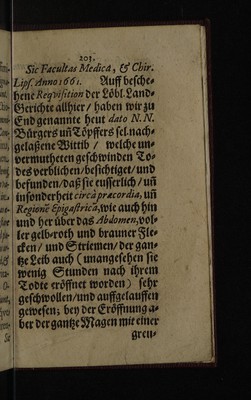 201.
Sic Facultas Medica, & Chir.
Lips. Anno 1661. Auff besche-
hene Requisition der Löbl. Land-
Gerichte allhier / haben wir zu
End genannte heut dato N. N.
Bürgers uñ Töpffers sel. nach-
gelaßene Wittib / welche un-
vermutheten geschwinden To-
des verblichen / besichtiget / und
befunden / daß sie eusserlich / uñ
insonderheit circà præcordia, uñ
Regione Epigastricâ, wie auch hin
und her über das Abdomen, vol-
ler gelb-roth und brauner Fle-
cken / und Striemen / der gan-
tze Leib auch (unangesehen sie
wenig Stunden nach ihrem
Todte eröffnet worden) sehr
geschwollen / und auffgelauffen
gewesen; bey der Eröffnung a-
ber der gantze Magen mit einer
greu-